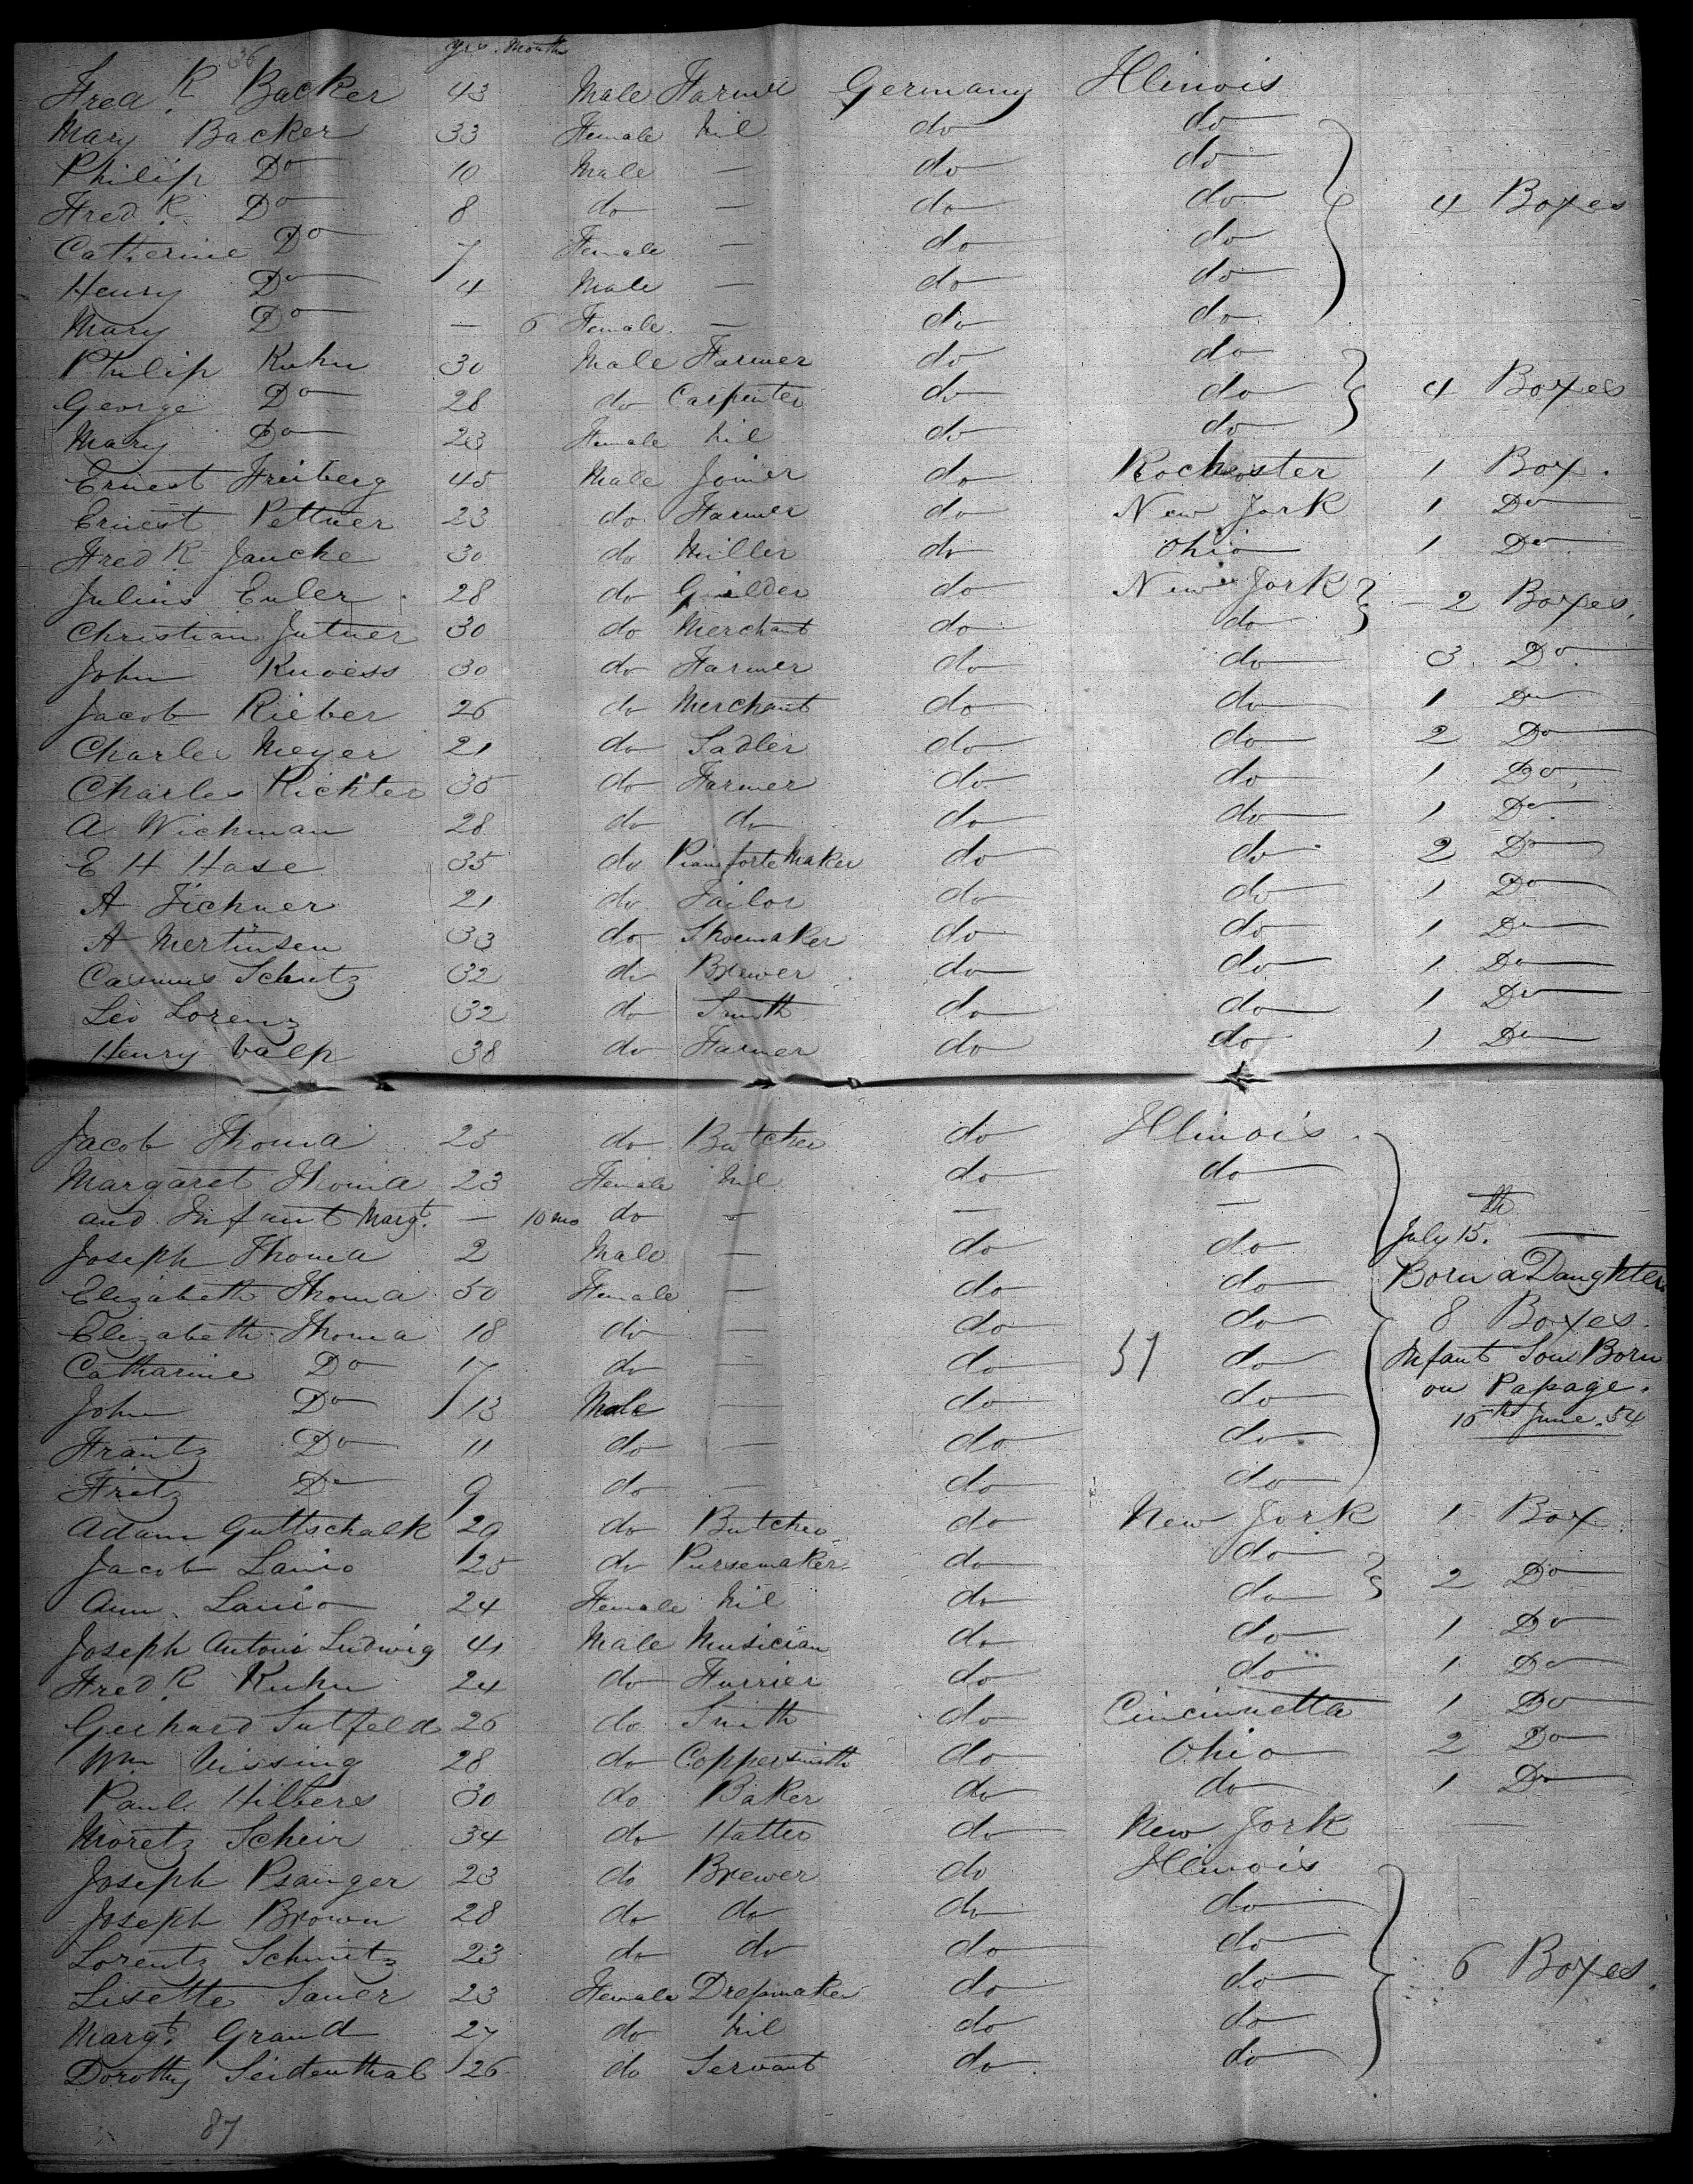 36
yrs. Months
Fred. R Backer 43 Male Farmer Germany Illinois
Mary Backer 33 Female Nil do do
Philip Do 10 Male — do do
Fred R. Do 8 do — do do 4 Boxes
Catherine Do 7 Female — do do
Henry Do 4 Male — do do
Mary Do — 6 Female — do do
Philip Kuhn 30 Male Farmer do do
George Do 28 do Carpenter do do 4 Boxes
Mary Do 23 Female Nil do do
Ernest Freiberg 45 Male Joiner do Rochester 1 Box.
Ernest Pettner 23 do Farmer do New York 1 Do
Fred R Jancke 30 do Miller do Ohio 1 Do
Julius Euler 28 do Guilder do New York
Christian Jutner 30 do Merchant do do 2 Boxes.
John Knoess 30 do Farmer do do 3 Do
Jacob Rieber 26 do Merchant do do 1 Do
Charles Meyer 21 do Sadler do do 2 Do
Charles Richter 35 do Farmer do do 1 Do
A Wichman 28 do do do do 1 Do
E H Hase 35 do Pianoforte Maker do do 2 Do
A Fichner 21 do Tailor do do 1 Do
A Mertinsen 33 do Shoemaker do do 1 Do
Schutz 32 do Brewer do do 1 Do
Leo Lorenz 32 do Smith do do 1 Do
Henry Valp 38 do Farmer do do 1 Do
Jacob Thoma 25 do Butcher do Illinois
Margaret Thoma 23 Female Nil do do
and Infant Margt. — 10 mo do — — — July 15th —
Joseph Thoma 2 Male — do do
Elizabeth Thoma 50 Female — do do Born a Daughter.
Elizabeth Thoma 18 do — do do 8 Boxes.
Catharine Do 17 do — do 51 do Infant Son Born
John Do 13 Male — do do on Passage.
Frantz Do 11 do — do do 15th June. 54
Fritz Do 9 do — do do
Adam Guttschalk 29 do Butcher do New York 1 Box
Jacob Lanio 25 do Pursemaker do do
Ann. Lanio 24 Female Nil do do 2 Do
Joseph Antoni Ludwig 41 Male Musician do do 1 Do
Fred. R Kuhn 24 do Furrier do do 1 Do
Gerhard Sutfeld 26 do Smith do Cincinnetta 1 Do
Wm. Nissing 28 do Coppersmith do Ohio 2 Do
Paul Hilbers 30 do Baker do do 1 Do
Moretz Scheir 34 do Hatter do New York —
Joseph Psanger 23 do Brewer do Illinois
Joseph Brown 28 do do do do
Lorentz Schmitz 23 do do do do
Lisette Sauer 23 Female Dressmaker do do 6 Boxes.
Margt. Grand 27 do Nil do do
Dorothy Seidenthal 26 do Servant do do
87